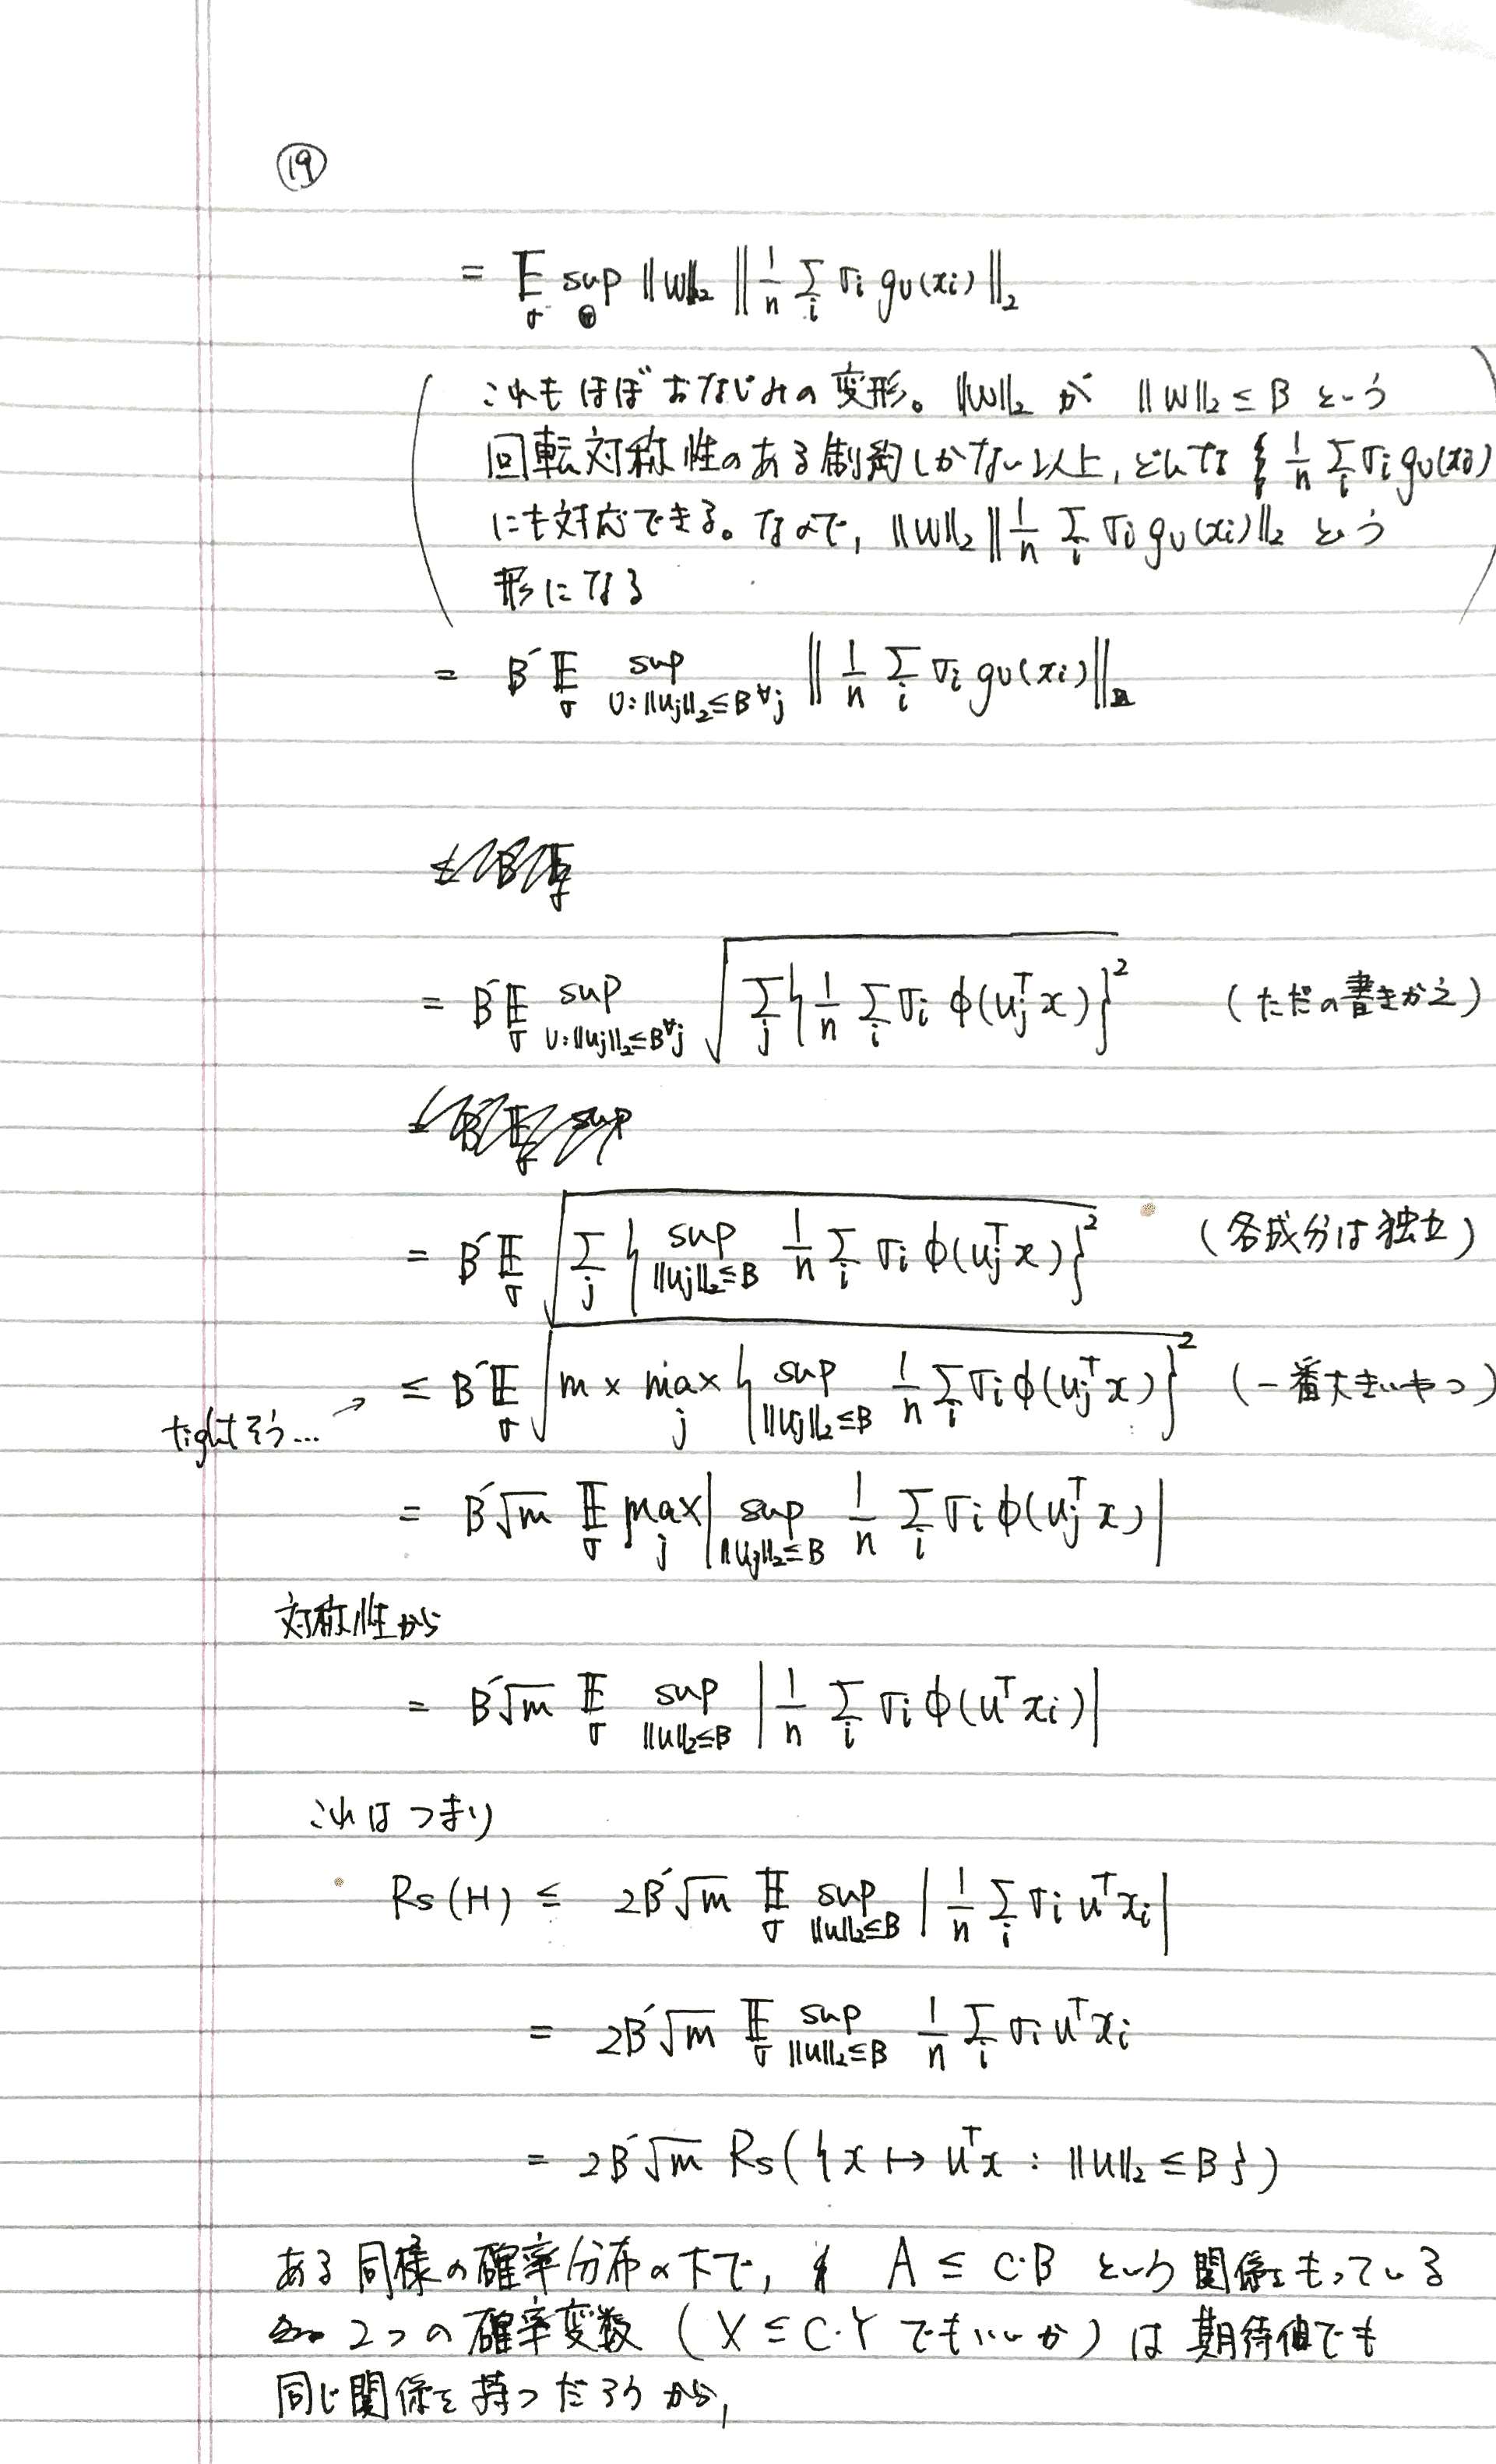 ⑲
= 𝔼_σ sup_Θ ‖w‖₂ ‖ 1/n Σ_i σi gU(xi) ‖₂
( これもほぼおなじみの変形。‖w‖₂ が ‖w‖₂ ≤ B という
回転対称性のある制約しかない以上, どんな 1/n Σ_i σi gU(xi)
にも対応できる。なので, ‖w‖₂ ‖ 1/n Σ_i σi gU(xi) ‖₂ という
形になる )
= B′ 𝔼_σ sup_{U:‖uj‖₂≤B ∀j} ‖ 1/n Σ_i σi gU(xi) ‖₂
= B′ 𝔼_σ sup_{U:‖uj‖₂≤B ∀j} √( Σ_j { 1/n Σ_i σi φ(uj^T x) }² ) (ただの書きかえ)
= B′ 𝔼_σ √( Σ_j { sup_{‖uj‖₂≤B} 1/n Σ_i σi φ(uj^T x) }² ) (各成分は独立)
tightそう… → ≤ B′ 𝔼_σ √( m × max_j { sup_{‖uj‖₂≤B} 1/n Σ_i σi φ(uj^T x) }² ) (一番大きいやつ)
= B′ √m 𝔼_σ max_j | sup_{‖uj‖₂≤B} 1/n Σ_i σi φ(uj^T x) |
対称性から
= B′ √m 𝔼_σ sup_{‖u‖₂≤B} | 1/n Σ_i σi φ(u^T xi) |
これはつまり
Rs(H) ≤ 2B′ √m 𝔼_σ sup_{‖u‖₂≤B} | 1/n Σ_i σi u^T xi |
= 2B′ √m 𝔼_σ sup_{‖u‖₂≤B} 1/n Σ_i σi u^T xi
= 2B′ √m Rs({ x ↦ u^T x : ‖u‖₂ ≤ B })
ある同様の確率分布の下で, A ≤ C·B という関係をもっている
2つの確率変数 (X ≤ C·Y でもいいか) は期待値でも
同じ関係を持つだろうから,